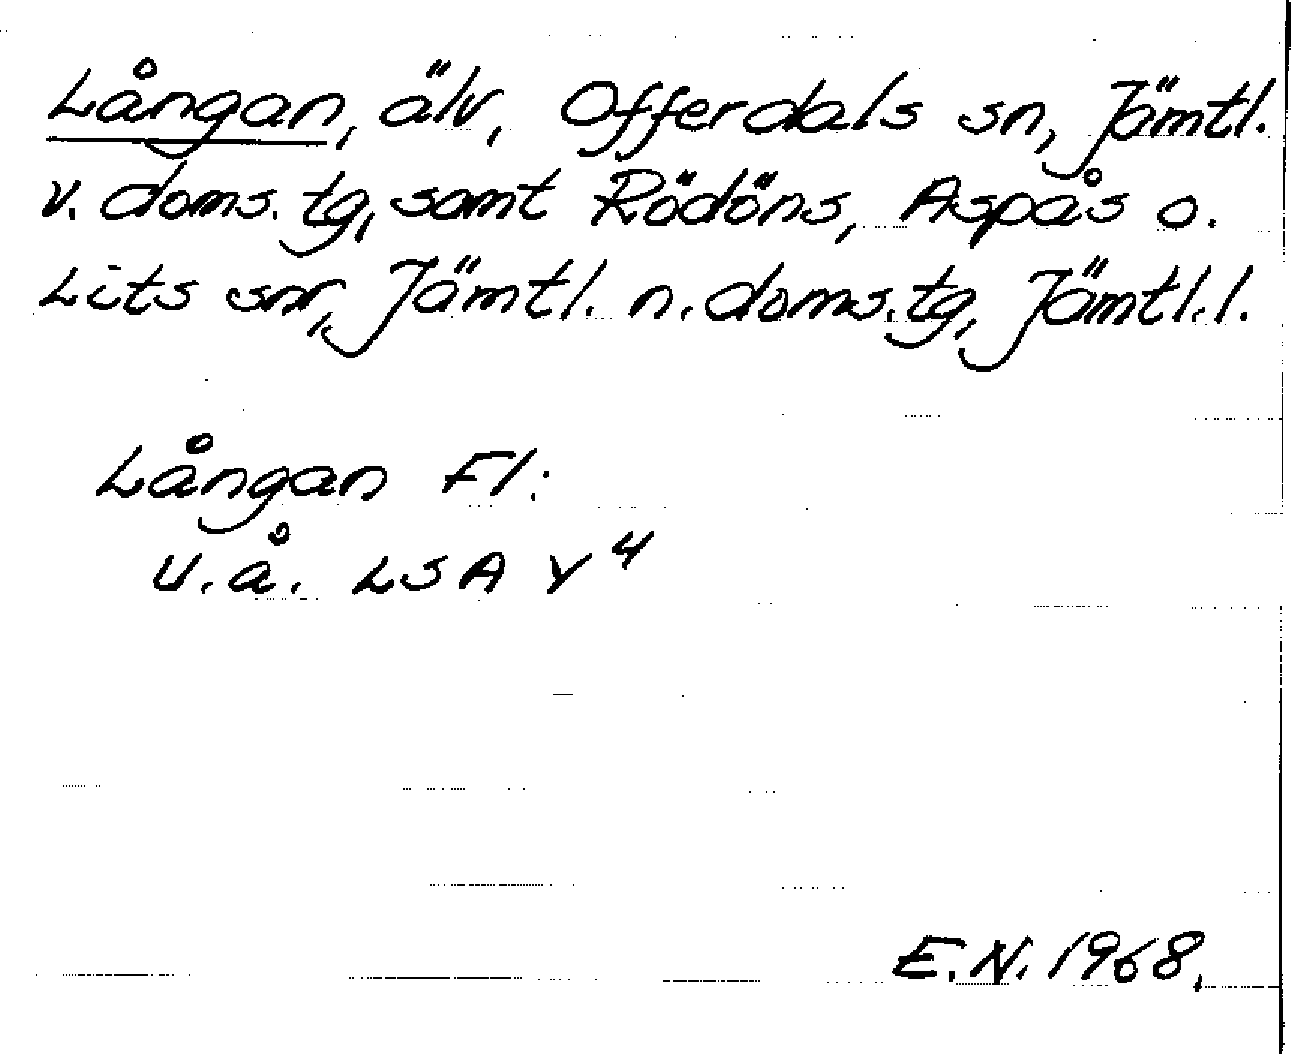 Långan, älv, Offerdals sn, Jämtl.
v. doms. tg, samt Rödöns, Aspås o.
Lits snr, Jämtl. n. doms. tg, Jämtl. l.
Långan Fl:
U.å. LSA Y 4
E.N. 1968.